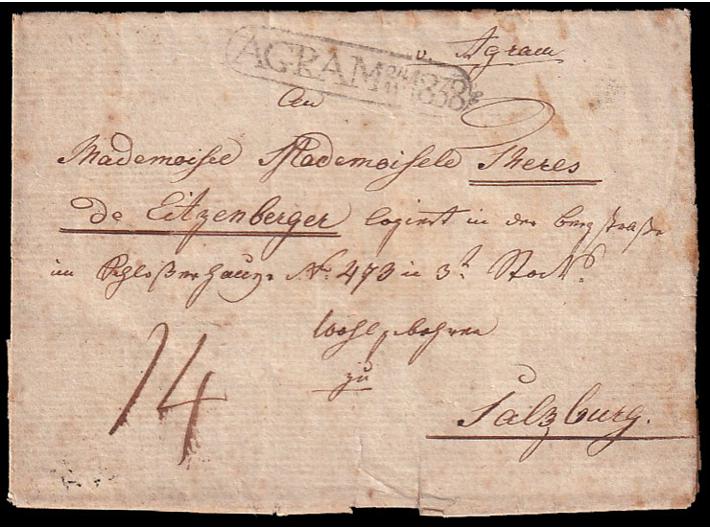 v. Agram
AGRAM 24/11 1838
An
Mademoisee Mademoisele Theres
De Eitzenberger logiert in der bergstraße
im Schloßerhauze No. 473 in 3t. Stock
Wohlgebohren
zu
14
Salzburg.